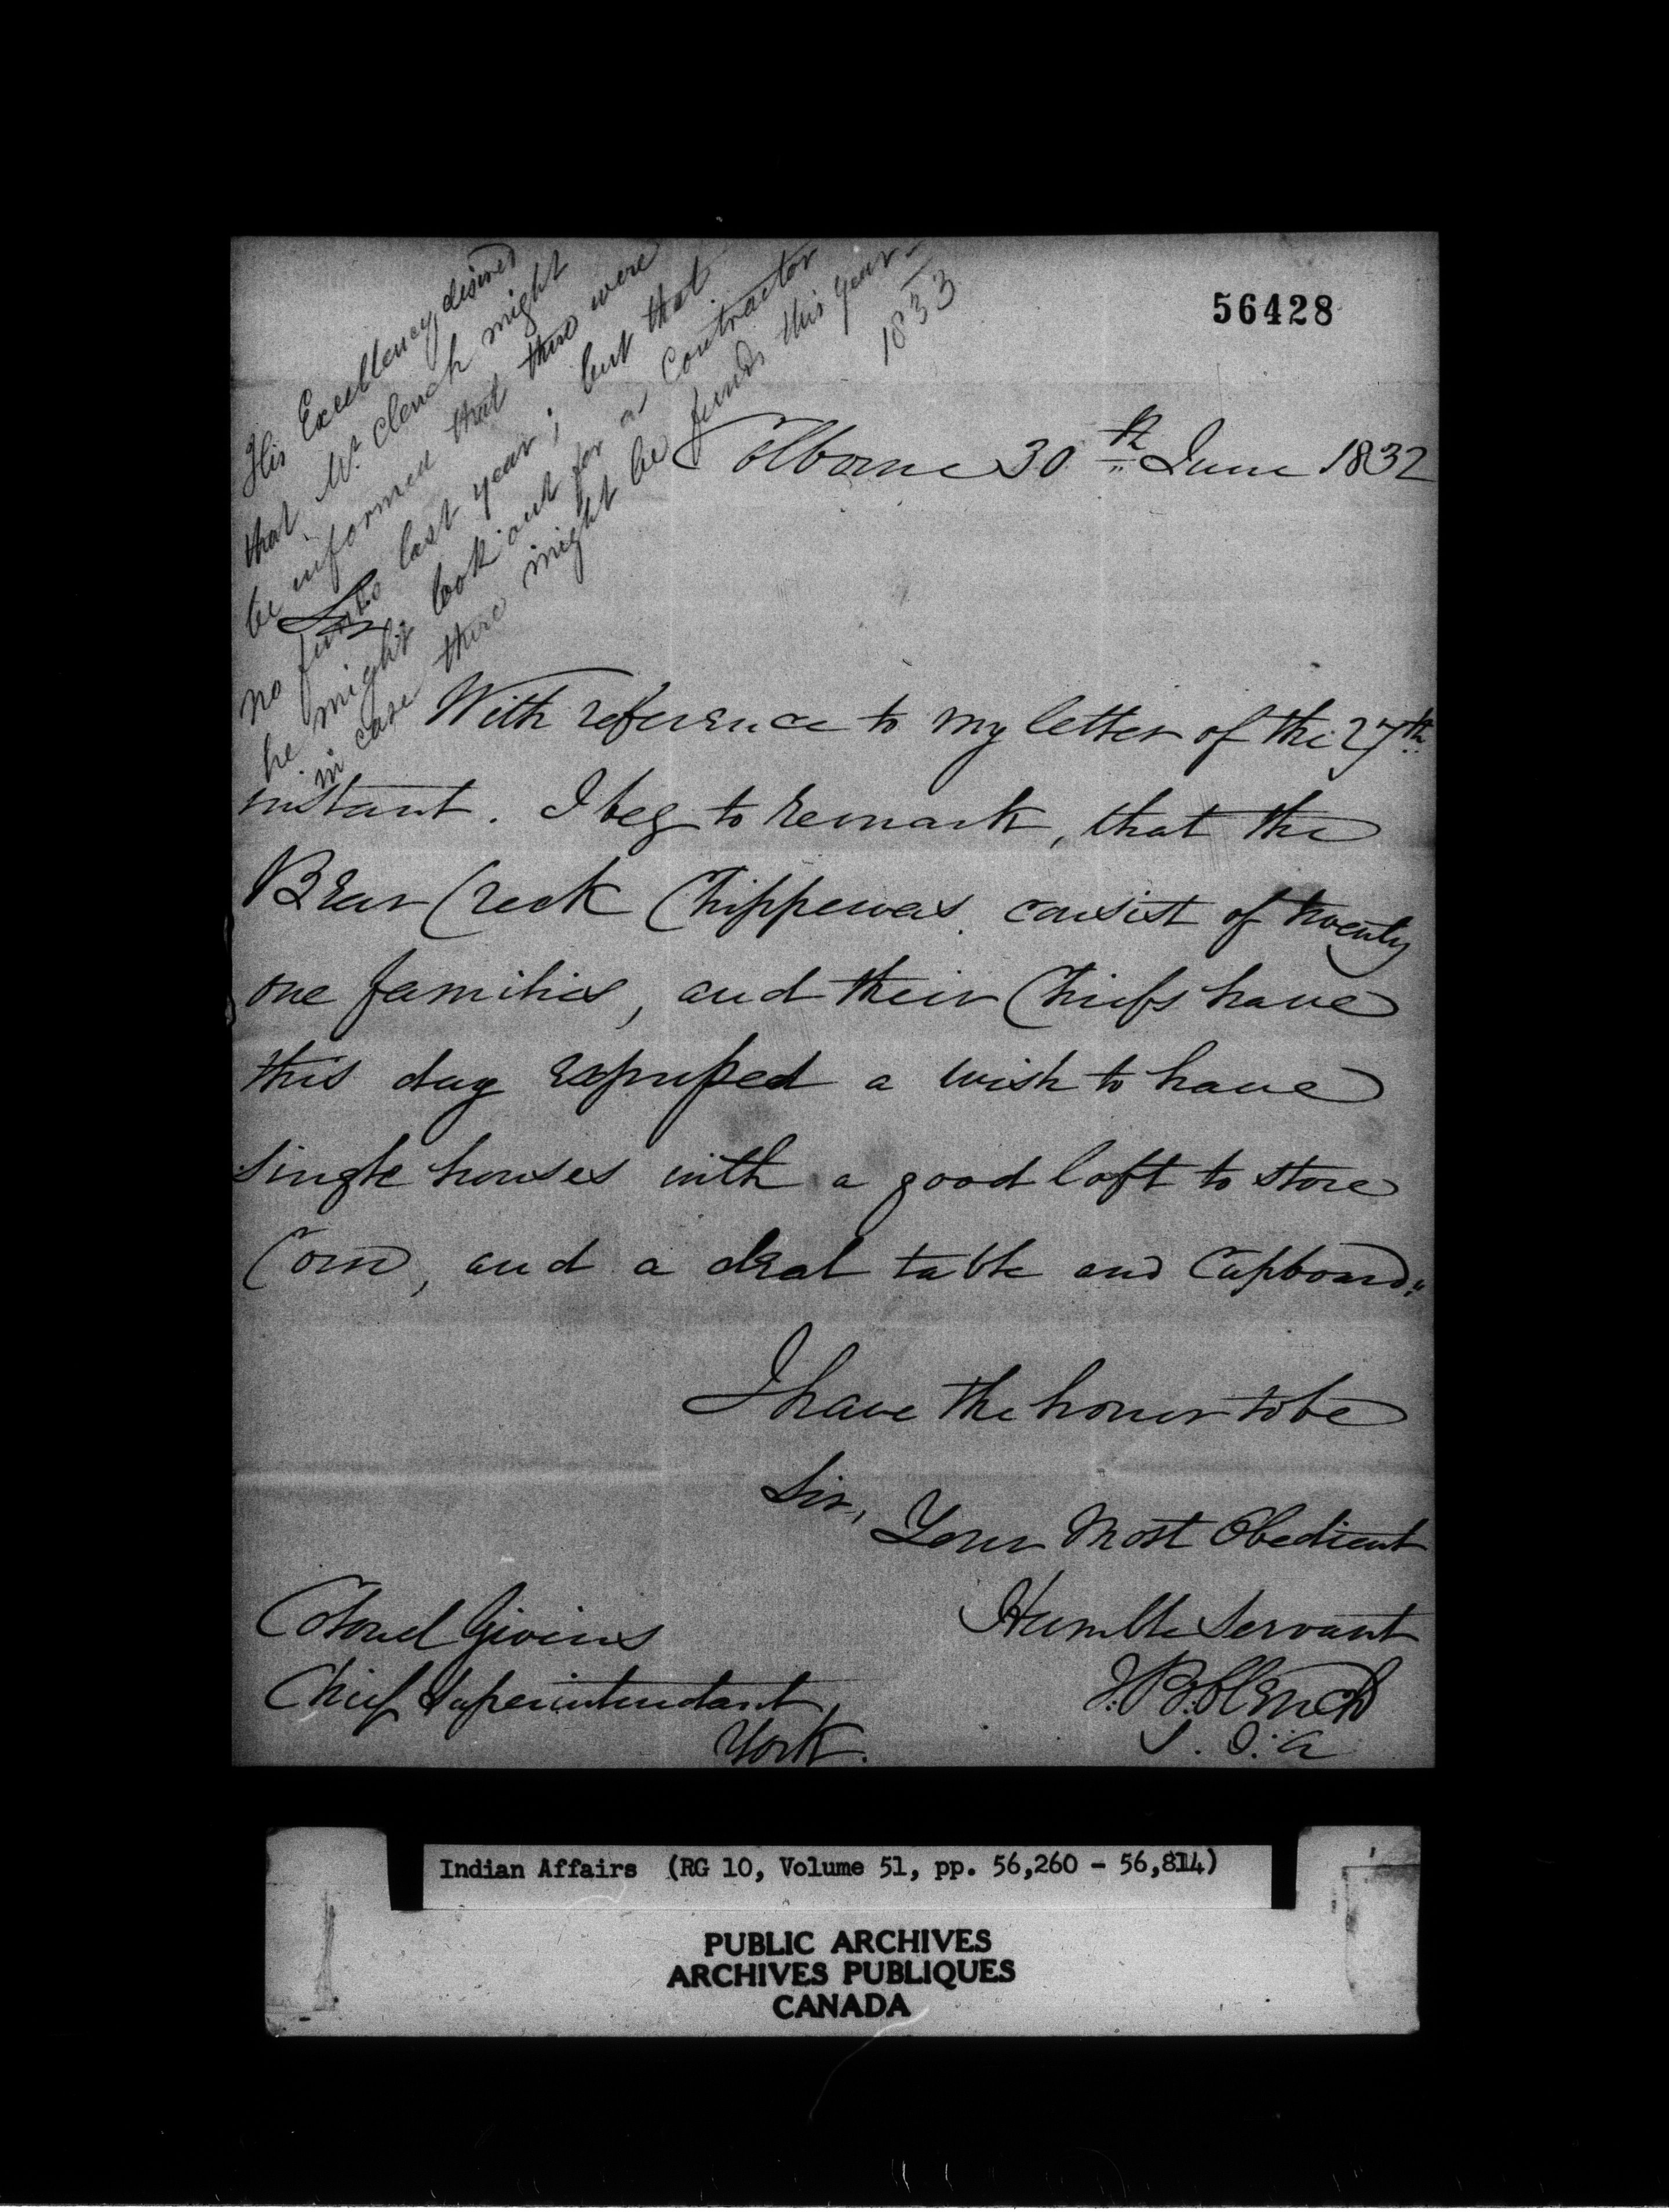 56428
His Excellency desires
that Mr. Clench might
be informed that there were
no funds last year; but that
he might look out for a Contractor
in case there might be funds this year -
1833
Colborne 30th June 1832
Sir,
With reference to my letter of the 27th
instant. I beg to remark, that the
Bear Creek Chippewas consist of twenty
one families, and their Chiefs have
this day expressed a wish to have
single houses with a good loft to store
Corn, and a deal table and Cupboard,,
I have the honor to be
Sir,
Your Most Obedient
Humble Servant
J. B. Clench
S. I. A
Colonel Givins
Chief Superintendant
York.
Indian Affairs (RG 10, Volume 51, pp. 56,260 - 56,814)
PUBLIC ARCHIVES
ARCHIVES PUBLIQUES
CANADA